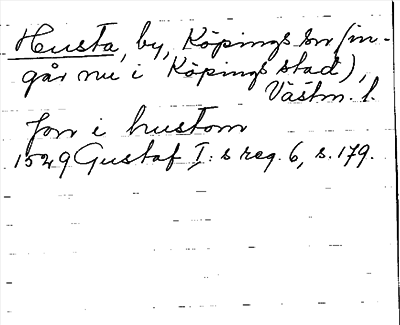 Husta, by, Köpings sn (in-
går nu i Köpings stad),
Västm. l.
Jon i hustom
1549 Gustaf I:s reg. 6, s. 179.